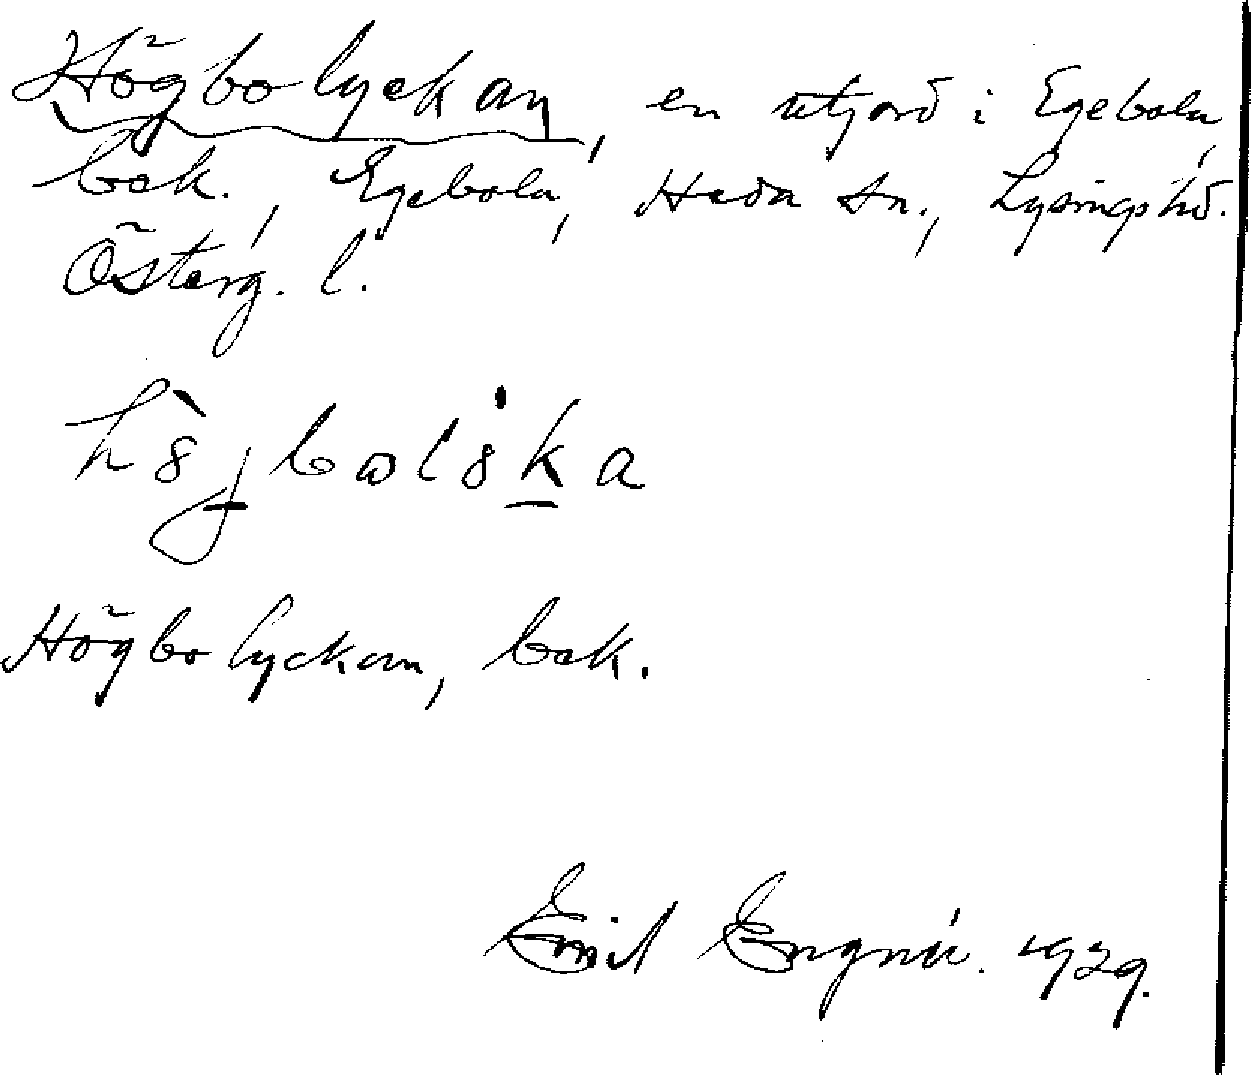 Högbolyckan, en utjord i Egebola,
bek., Egebola, Heda sn., Lysings hd.
Österg. l.
Högbolyckan, bek.
Emil Engnér. 1929.